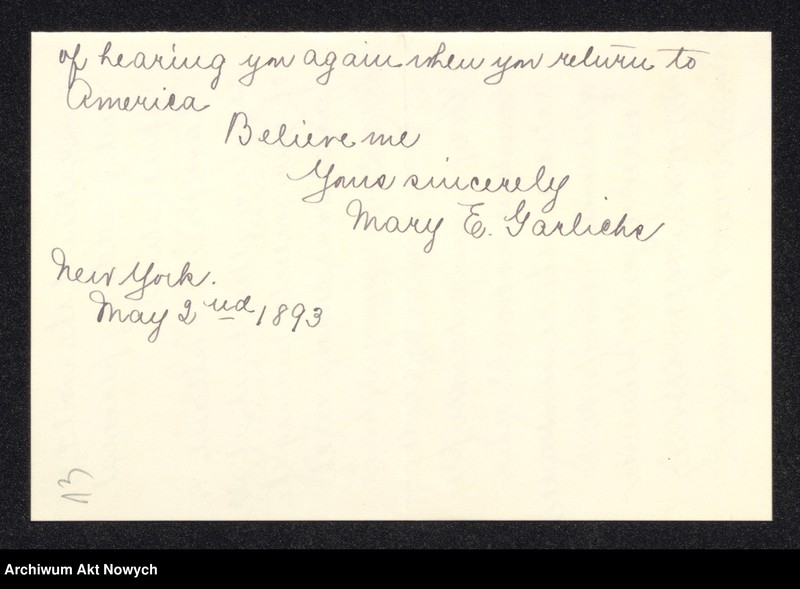 of hearing you again when you return to
America
Believe me
Yours sincerely
Mary E. Garlichs
New York.
May 2nd 1893
13
Archiwum Akt Nowych